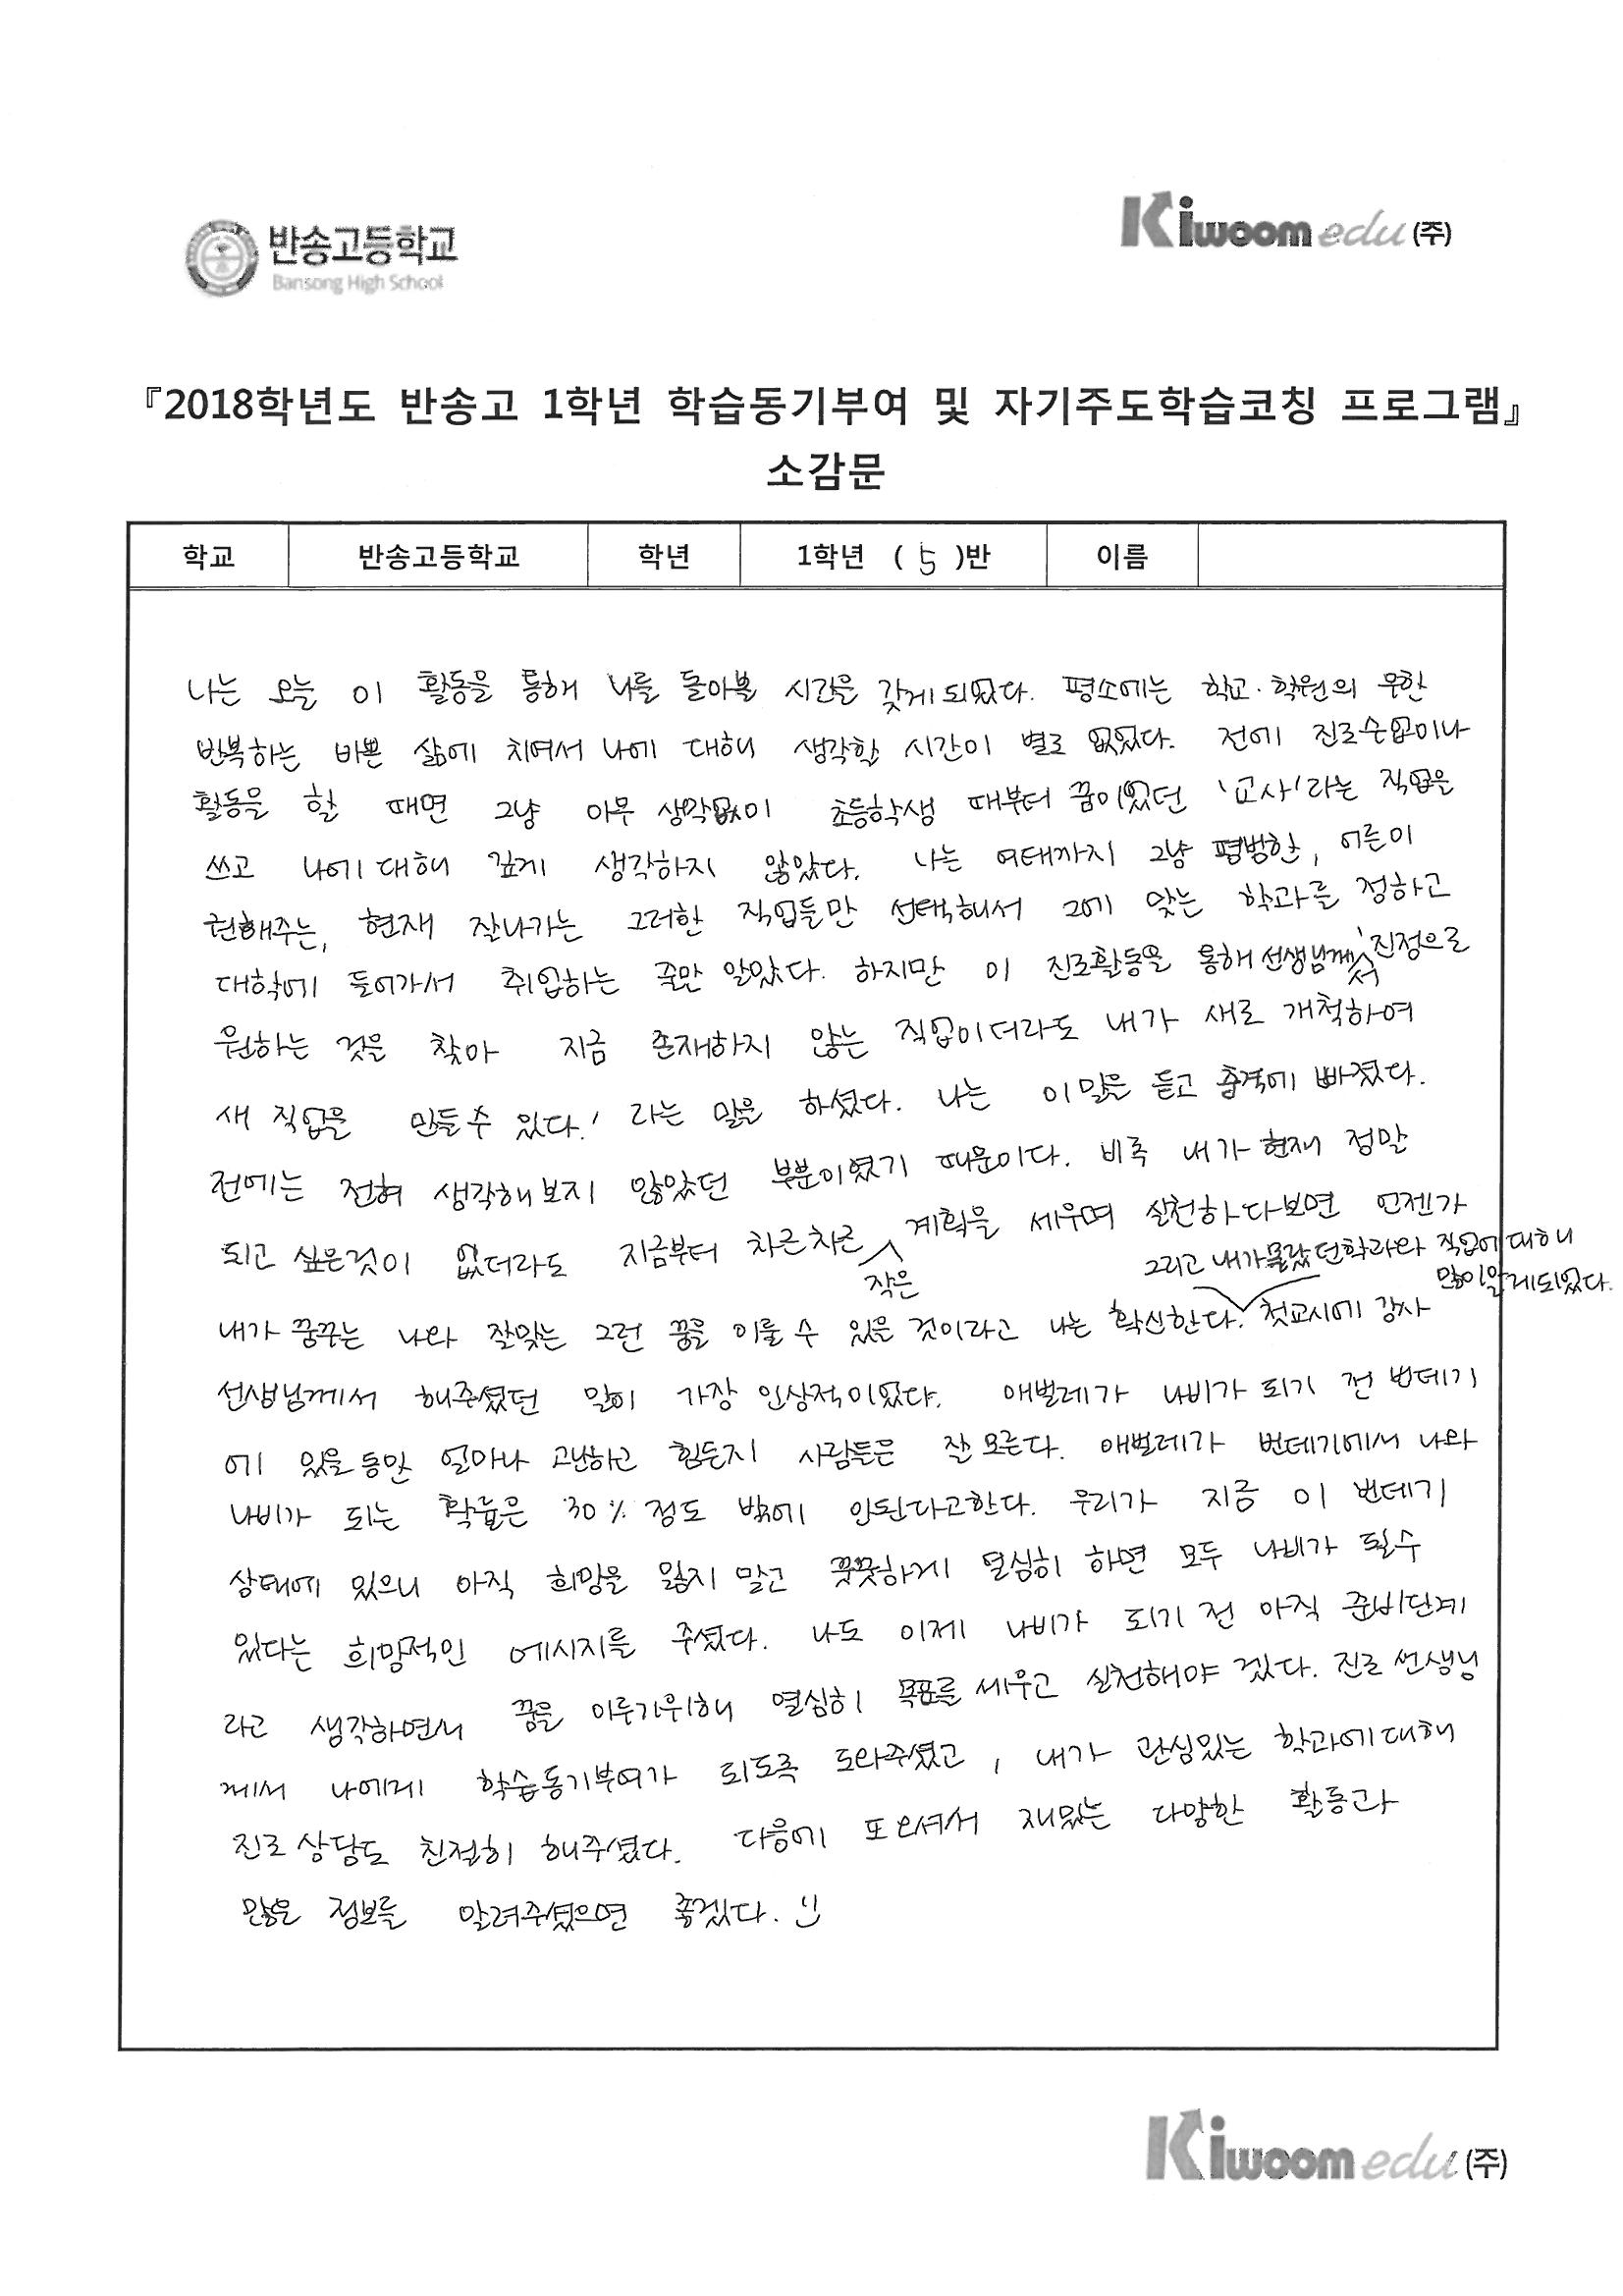 반송고등학교
Bansong High School
Kiwoom edu (주)
『2018학년도 반송고 1학년 학습동기부여 및 자기주도학습코칭 프로그램』
소감문
학교 반송고등학교 학년 1학년 ( 5 )반 이름
나는 오늘 이 활동을 통해 나를 돌아볼 시간을 갖게 되었다. 평소에는 학교·학원의 무한
반복하는 바쁜 삶에 치여서 나에 대해 생각할 시간이 별로 없었다. 전에 진로수업이나
활동을 할 때면 그냥 아무 생각없이 초등학생 때부터 꿈이었던 '교사'라는 직업을
쓰고 나에 대해 깊게 생각하지 않았다. 나는 여태까지 그냥 평범한, 어른이
권해주는, 현재 잘나가는 그러한 직업들만 선택해서 그에 맞는 학과를 정하고
대학에 들어가서 취업하는 줄만 알았다. 하지만 이 진로활동을 통해 선생님께서 '진정으로
원하는 것을 찾아 지금 존재하지 않는 직업이더라도 내가 새로 개척하여
새 직업을 만들수 있다.' 라는 말을 하셨다. 나는 이 말을 듣고 충격에 빠졌다.
전에는 전혀 생각해보지 않았던 부분이였기 때문이다. 비록 내가 현재 정말
되고 싶은것이 없더라도 지금부터 차근차근 작은 계획을 세우며 실천하다보면 언젠가
내가 꿈꾸는 나와 잘맞는 그런 꿈을 이룰 수 있을 것이라고 나는 확신한다. 그리고 내가 몰랐던 학과와 직업에 대해 많이 알게되었다. 첫교시에 강사
선생님께서 해주셨던 말이 가장 인상적이었다. 애벌레가 나비가 되기 전 번데기
에 있을 동안 얼마나 고난하고 힘든지 사람들은 잘 모른다. 애벌레가 번데기에서 나와
나비가 되는 확률은 30% 정도 밖에 안된다고한다. 우리가 지금 이 번데기
상태에 있으니 아직 희망을 잃지 말고 꿋꿋하게 열심히 하면 모두 나비가 될수
있다는 희망적인 메시지를 주셨다. 나도 이제 나비가 되기 전 아직 준비단계
라고 생각하면서 꿈을 이루기위해 열심히 목표를 세우고 실천해야 겠다. 진로 선생님
께서 나에게 학습동기부여가 되도록 도와주셨고, 내가 관심있는 학과에 대해
진로 상담도 친절히 해주셨다. 다음에 또 오셔서 재밌는 다양한 활동과
많은 정보를 알려주셨으면 좋겠다. :)
Kiwoom edu (주)